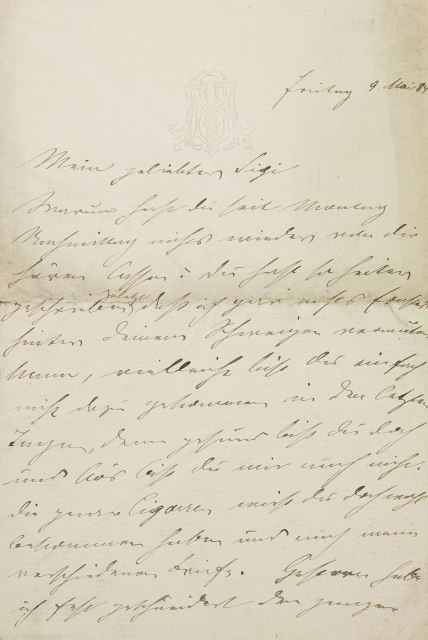 Freitag 9. Mai 84
Mein geliebter Sigi
Warum hast du seit Montag
Nachmittag nichts wieder von dir
hören lassen? Du hast so heiter
geschrieben, daß ich gar nichts
hinter deinem Schweigen vermuten
kann, vielleicht bist du einfach
nicht dazu gekommen in den letzten
Tagen, denn gesund bist du doch
und bös bist du mir auch nicht.
die Cigarren wirst du doch wohl
bekommen haben und auch meine
verschiedenen Briefe. Gestern habe
ich fast geschneidert den ganzen